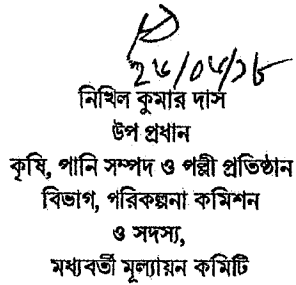 ২৬/০৬/১৮
নিখিল কুমার দাস
উপ প্রধান
কৃষি, পানি সম্পদ ও পল্লী প্রতিষ্ঠান
বিভাগ, পরিকল্পনা কমিশন
ও সদস্য,
মধ্যবর্তী মূল্যায়ন কমিটি